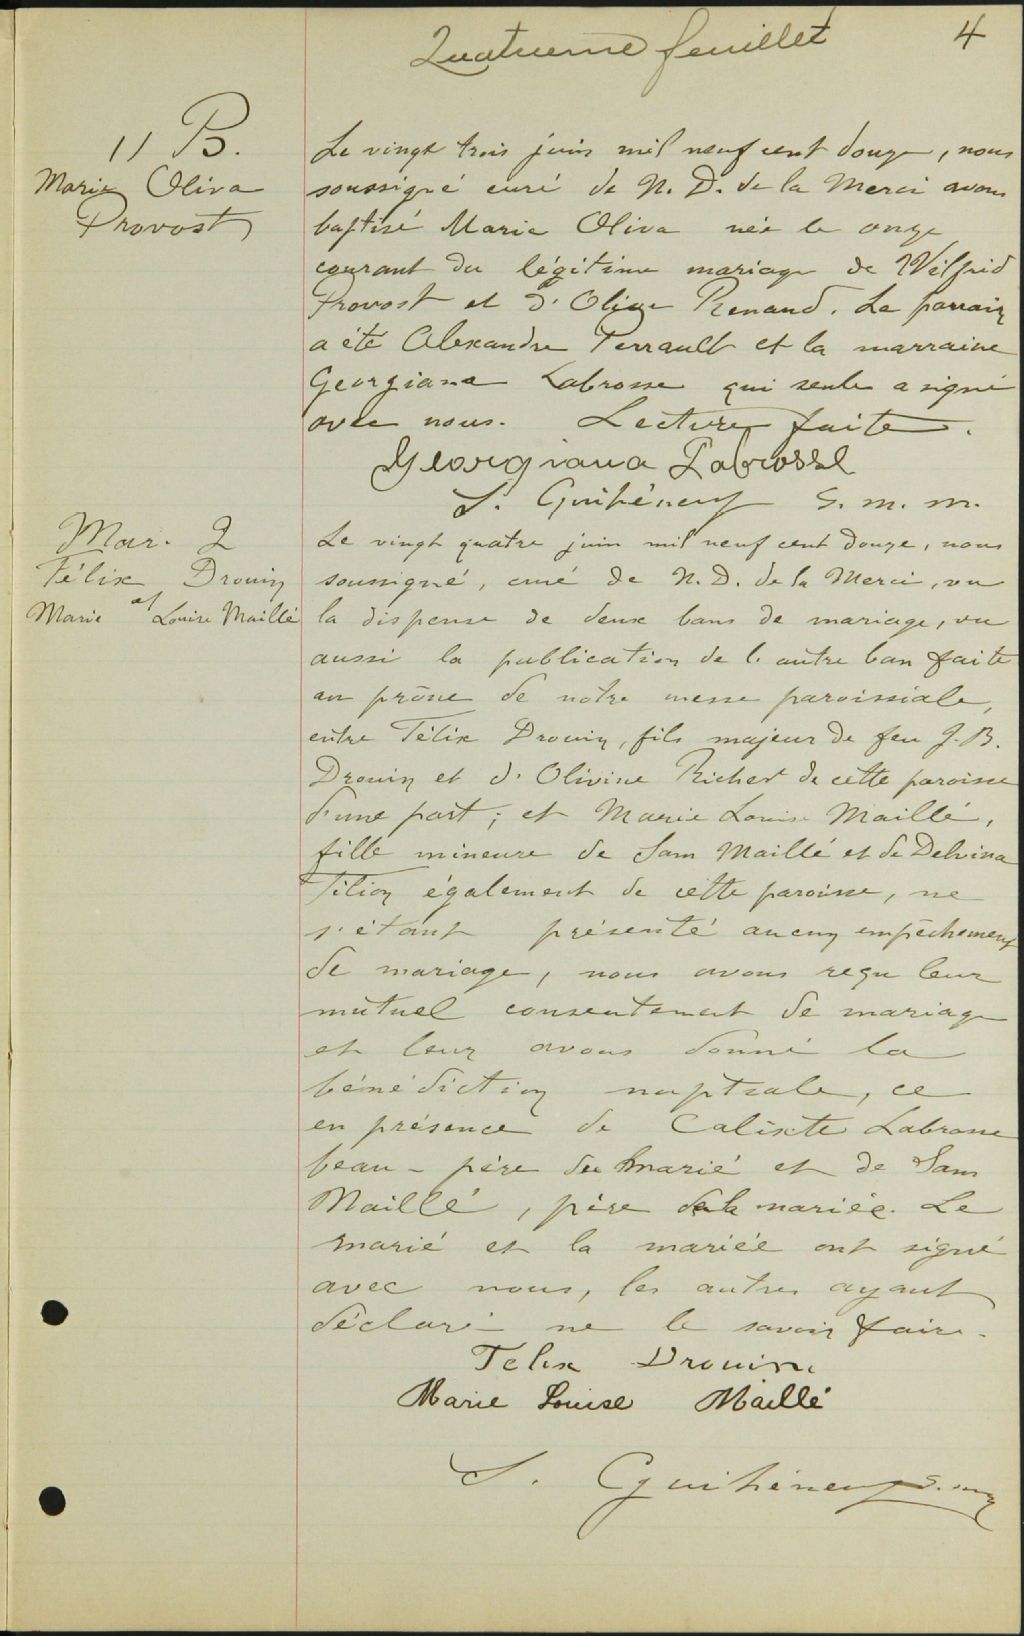 Quatrieme feuillet 4
11 B.
Marie Oliva
Provost
Le vingt trois juin mil neuf cent douze, nous
soussigné curé de N. D. de la Merci avons
baptisé Marie Oliva née le onze
courant du légitime mariage de Wilfrid
Provost et d'Olive Renaud. Le parrain
a été Alexandre Perrault et la marraine
Georgiana Labrosse qui seule a signé
avec nous. Lecture faite.
Georgiana Labrosse
S. Guihéneuf S. m. m.
Mar. 2
Félix Drouin
et
Marie Louise Maillé
Le vingt quatre juin mil neuf cent douze, nous
soussigné, curé de N. D. de la Merci, vu
la dispense de deux bans de mariage, vu
aussi la publication de l'autre ban faite
au prône de notre messe paroissiale,
entre Félix Drouin, fils majeur de feu J. B.
Drouin et d'Olivine Richer de cette paroisse
d'une part; et Marie Louise Maillé,
fille mineure de Sam Maillé et de Delvina
Filion également de cette paroisse, ne
s'étant présenté aucun empêchement
de mariage, nous avons reçu leur
mutuel consentement de mariage
et leur avons donné la
bénédiction nuptiale, ce
en présence de Calixte Labrosse
beau-père du marié et de Sam
Maillé, père de la mariée. Le
marié et la mariée ont signé
avec nous, les autres ayant
déclaré ne le savoir faire.
Felix Drouin
Marie Louise Maillé
S. Guihéneuf S. m. m.